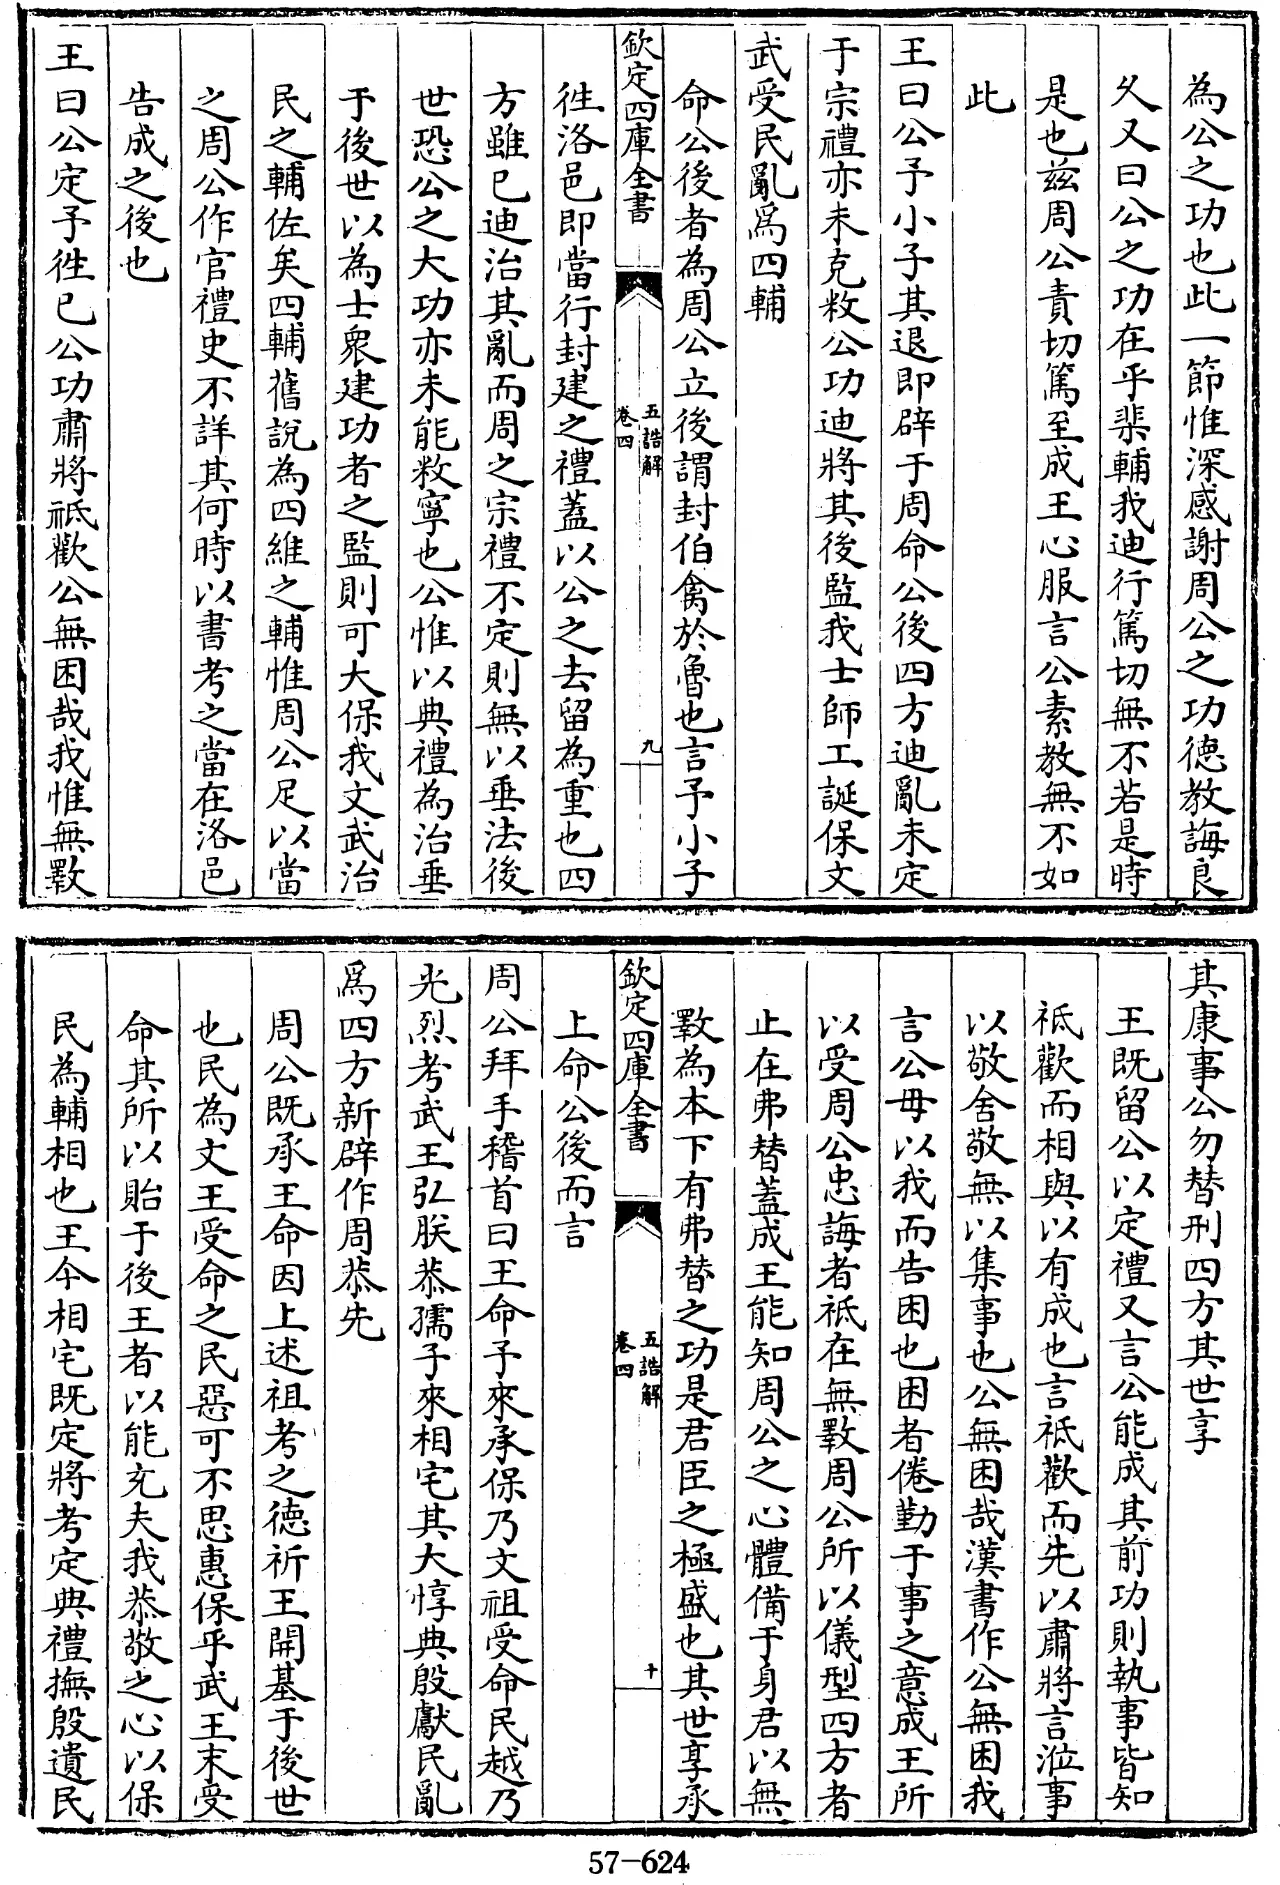 為公之功也此一節惟深感謝周公之功德教誨良
久又曰公之功在乎棐輔我迪行篤切無不若是時
是也茲周公責切篤至成王心服言公素教無不如
此
王曰公予小子其退即辟于周命公後四方迪亂未定
于宗禮亦未克敉公功迪將其後監我士師工誕保文
武受民亂為四輔
命公後者為周公立後謂封伯禽於魯也言予小子
欽定四庫全書
五誥解
卷四
九
徃洛邑即當行封建之禮蓋以公之去留為重也四
方雖已迪治其亂而周之宗禮不定則無以垂法後
世恐公之大功亦未能敉寧也公惟以典禮為治垂
于後世以為士衆建功者之監則可大保我文武治
民之輔佐矣四輔舊說為四維之輔惟周公足以當
之周公作官禮史不詳其何時以書考之當在洛邑
告成之後也
王曰公定予徃已公功肅將祗歡公無困哉我惟無斁
其康事公勿替刑四方其世享
王既留公以定禮又言公能成其前功則執事皆知
祗歡而相與以有成也言祗歡而先以肅將言涖事
以敬舍敬無以集事也公無困哉漢書作公無困我
言公毋以我而告困也困者倦勤于事之意成王所
以受周公忠誨者祗在無斁周公所以儀型四方者
止在弗替蓋成王能知周公之心體備于身君以無
斁為本下有弗替之功是君臣之極盛也其世享承
欽定四庫全書
五誥解
卷四
十
上命公後而言
周公拜手稽首曰王命予來承保乃文祖受命民越乃
光烈考武王弘朕恭孺子來相宅其大惇典殷獻民亂
為四方新辟作周恭先
周公既承王命因上述祖考之德祈王開基于後世
也民為文王受命之民惡可不思惠保乎武王末受
命其所以貽于後王者以能充夫我恭敬之心以保
民為輔相也王今相宅既定將考定典禮撫殷遺民
57-624